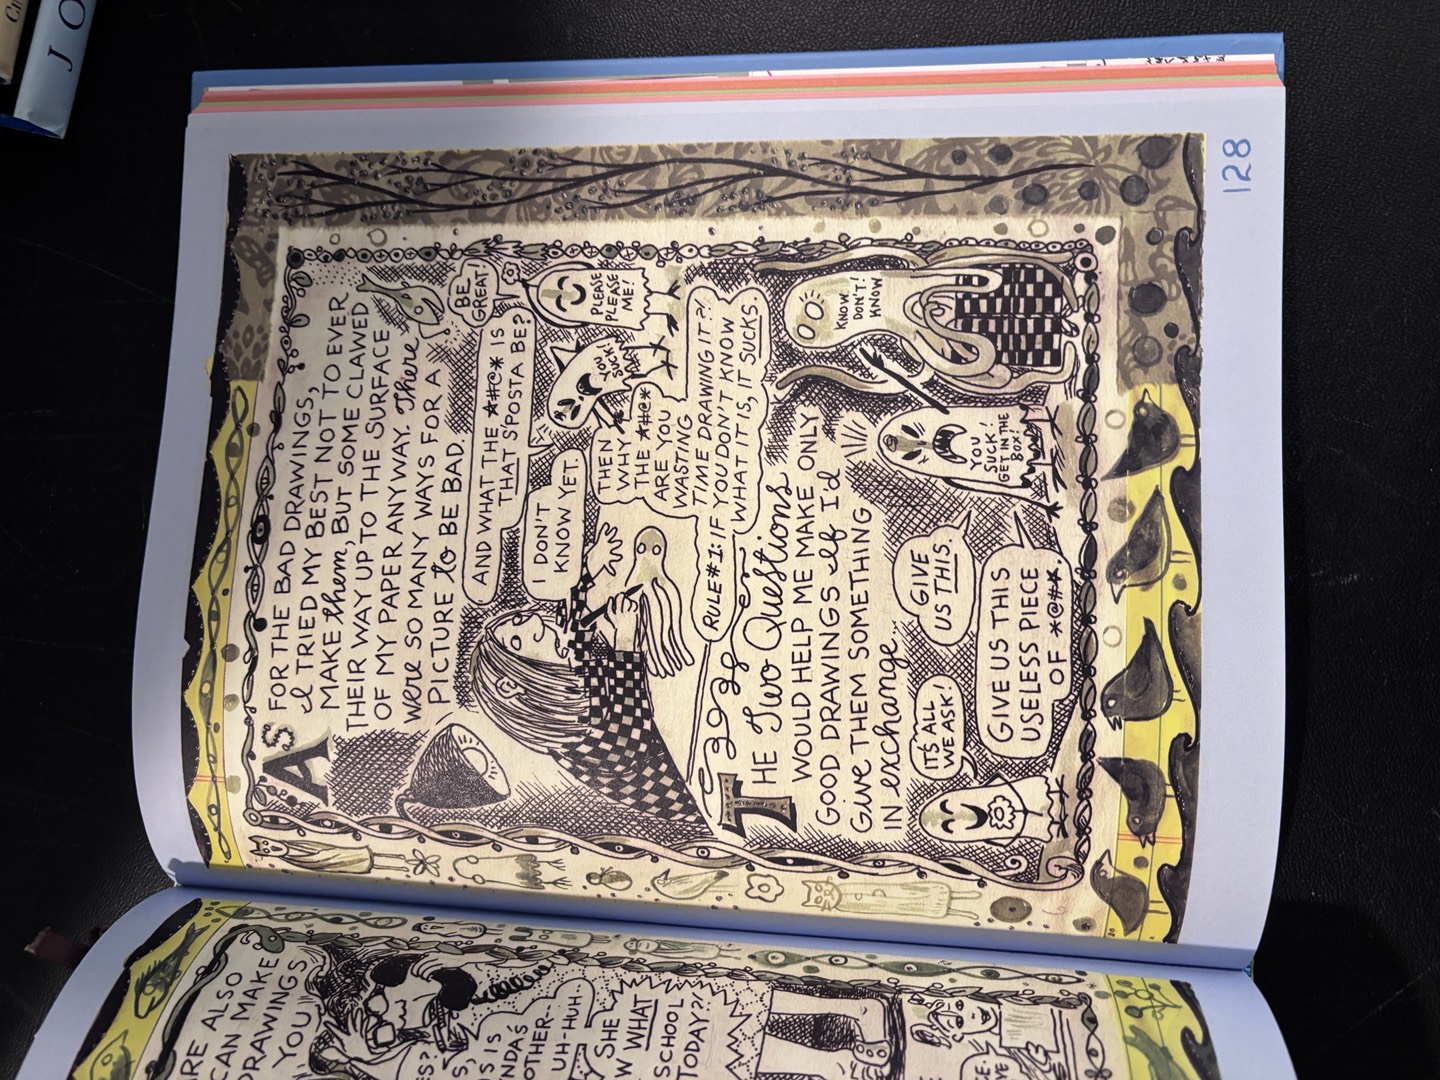 AS FOR THE BAD DRAWINGS,
I TRIED MY BEST NOT TO EVER
MAKE them, BUT SOME CLAWED
THEIR WAY UP TO THE SURFACE
OF MY PAPER ANYWAY. There
were SO MANY WAYS FOR A
PICTURE to BE BAD.
BE
GREAT
PLEASE
PLEASE
ME!
AND WHAT THE *#@* IS
THAT S'POSTA BE?
YOU
SUCK!
I DON'T
KNOW YET.
THEN
WHY
THE *#@*
ARE YOU
WASTING
TIME DRAWING IT?!
RULE #1: IF YOU DON'T KNOW
WHAT IT IS, IT SUCKS.
THE Two Questions
WOULD HELP ME MAKE ONLY
GOOD DRAWINGS If I'd
GIVE THEM SOMETHING
IN exchange.
KNOW
DON'T!
KNOW
YOU
SUCK!
GET IN THE
BOX!
GIVE
US THIS.
IT'S ALL
WE ASK!
GIVE US THIS
USELESS PIECE
OF *@#*.
128
ARE ALSO
CAN MAKE
DRAWINGS
YOU
OTHER--
UH-HUH.
SHE
WHAT
SCHOOL
TODAY?!
J O